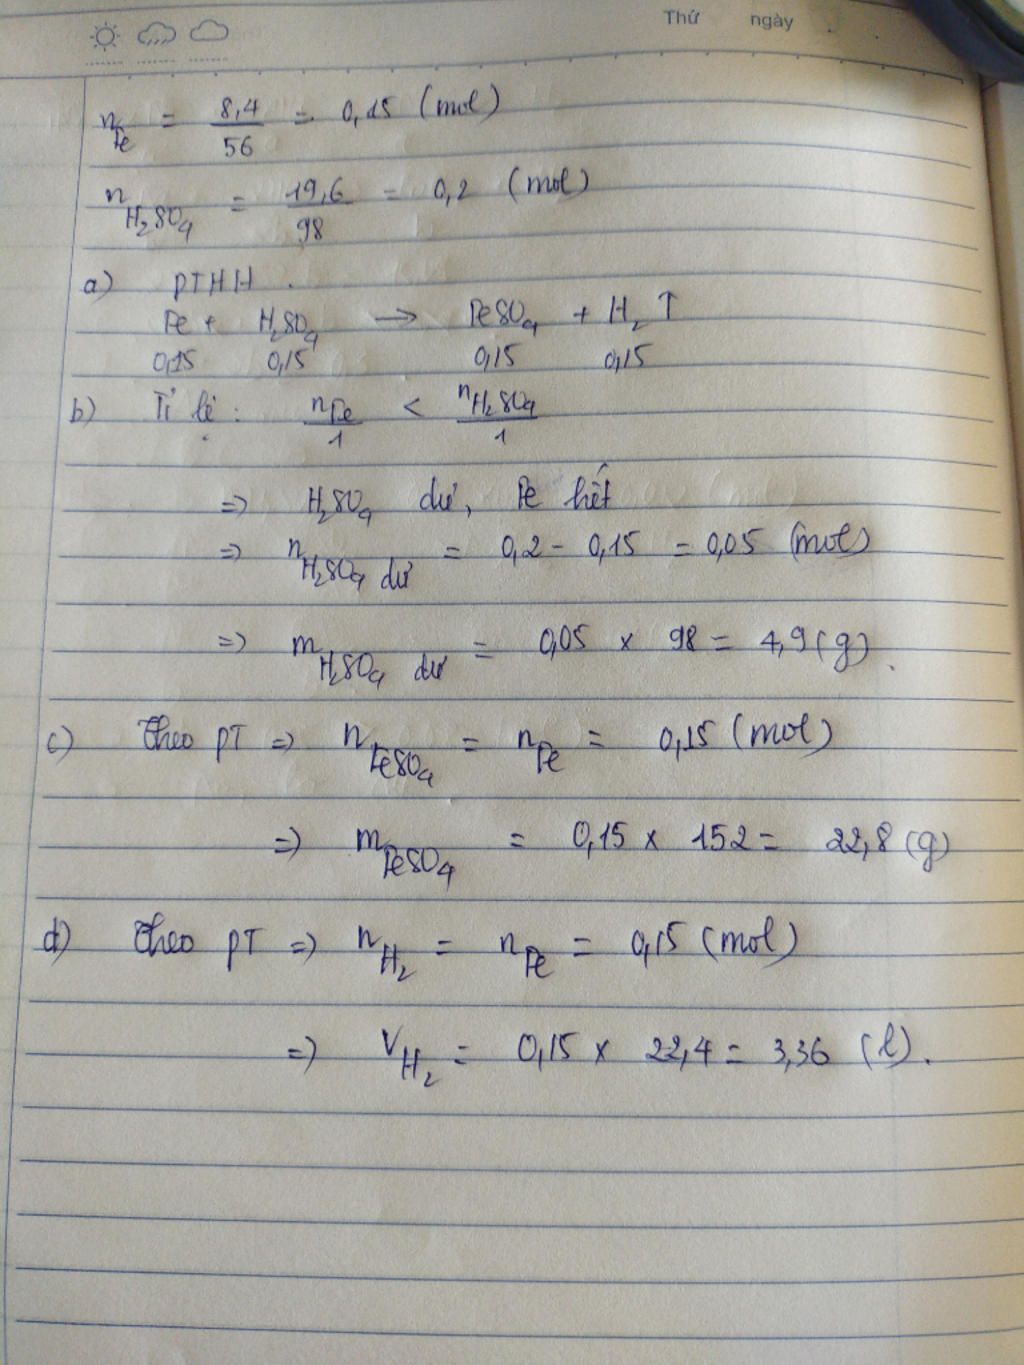 Thứ ngày
n Fe = 8,4 / 56 = 0,15 (mol)
n H₂SO₄ = 19,6 / 98 = 0,2 (mol)
a) PTHH.
Fe + H₂SO₄ → FeSO₄ + H₂ ↑
0,15 0,15 0,15 0,15
b) Tỉ lệ : nFe / 1 < nH₂SO₄ / 1
=> H₂SO₄ dư, Fe hết
=> n H₂SO₄ dư = 0,2 - 0,15 = 0,05 (mol)
=> m H₂SO₄ dư = 0,05 x 98 = 4,9 (g).
c) Theo PT => n FeSO₄ = n Fe = 0,15 (mol)
=> m FeSO₄ = 0,15 x 152 = 22,8 (g)
d) Theo PT => n H₂ = n Fe = 0,15 (mol)
=> V H₂ = 0,15 x 22,4 = 3,36 (l).